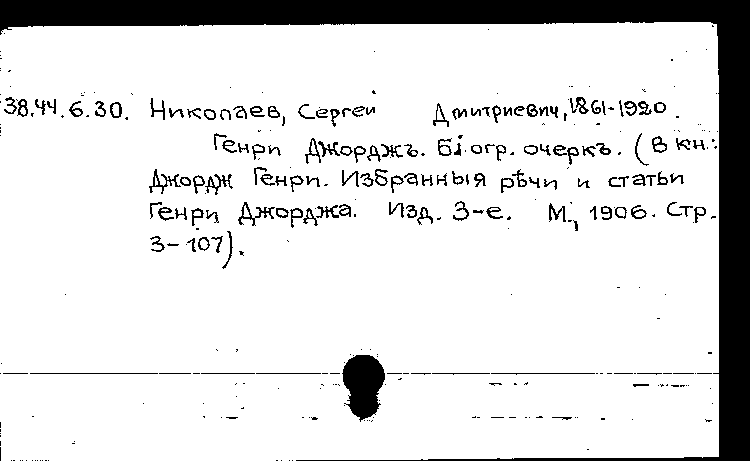 38.44.6.30. Николаев, Сергей Дмитриевич, 1861-1920.
Генри Джорджъ. Біогр. очеркъ. (В кн.:
Джордж Генри. Избранныя рѣчи и статьи
Генри Джорджа. Изд. 3-е. М., 1906. Стр.
3-107).